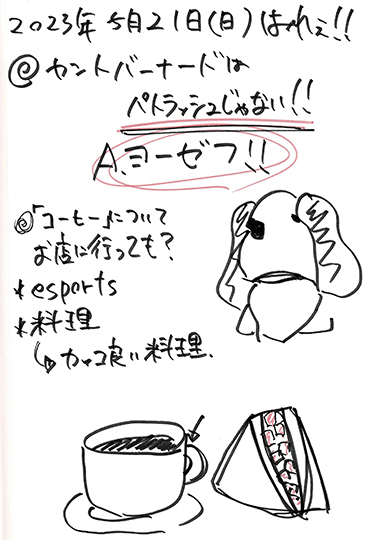 2023年5月21日(日)はれぇ!!
@セントバーナードは
ペトラッシュじゃない!!
A.ヨーゼフ!!
@「コーヒー」について
お店に行っても?
*esports
*料理
↳カッコ良い料理.